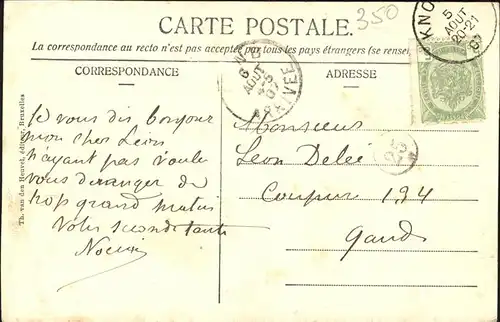 CARTE POSTALE.
350
La correspondance au recto n'est pas acceptée par tous les pays étrangers (se rensei
CORRESPONDANCE
ADRESSE
KNO
5
AOUT
20-21
07
6
AOUT
07
ARRIVÉE
25
Je vous dis bonjour
mon cher Léon
n'ayant pas voulu
vous déranger de
trop grand matin
Votre
Monsieur
Léon
Coupure 194
Gand
Th. van den Heuvel, éditeur, Bruxelles